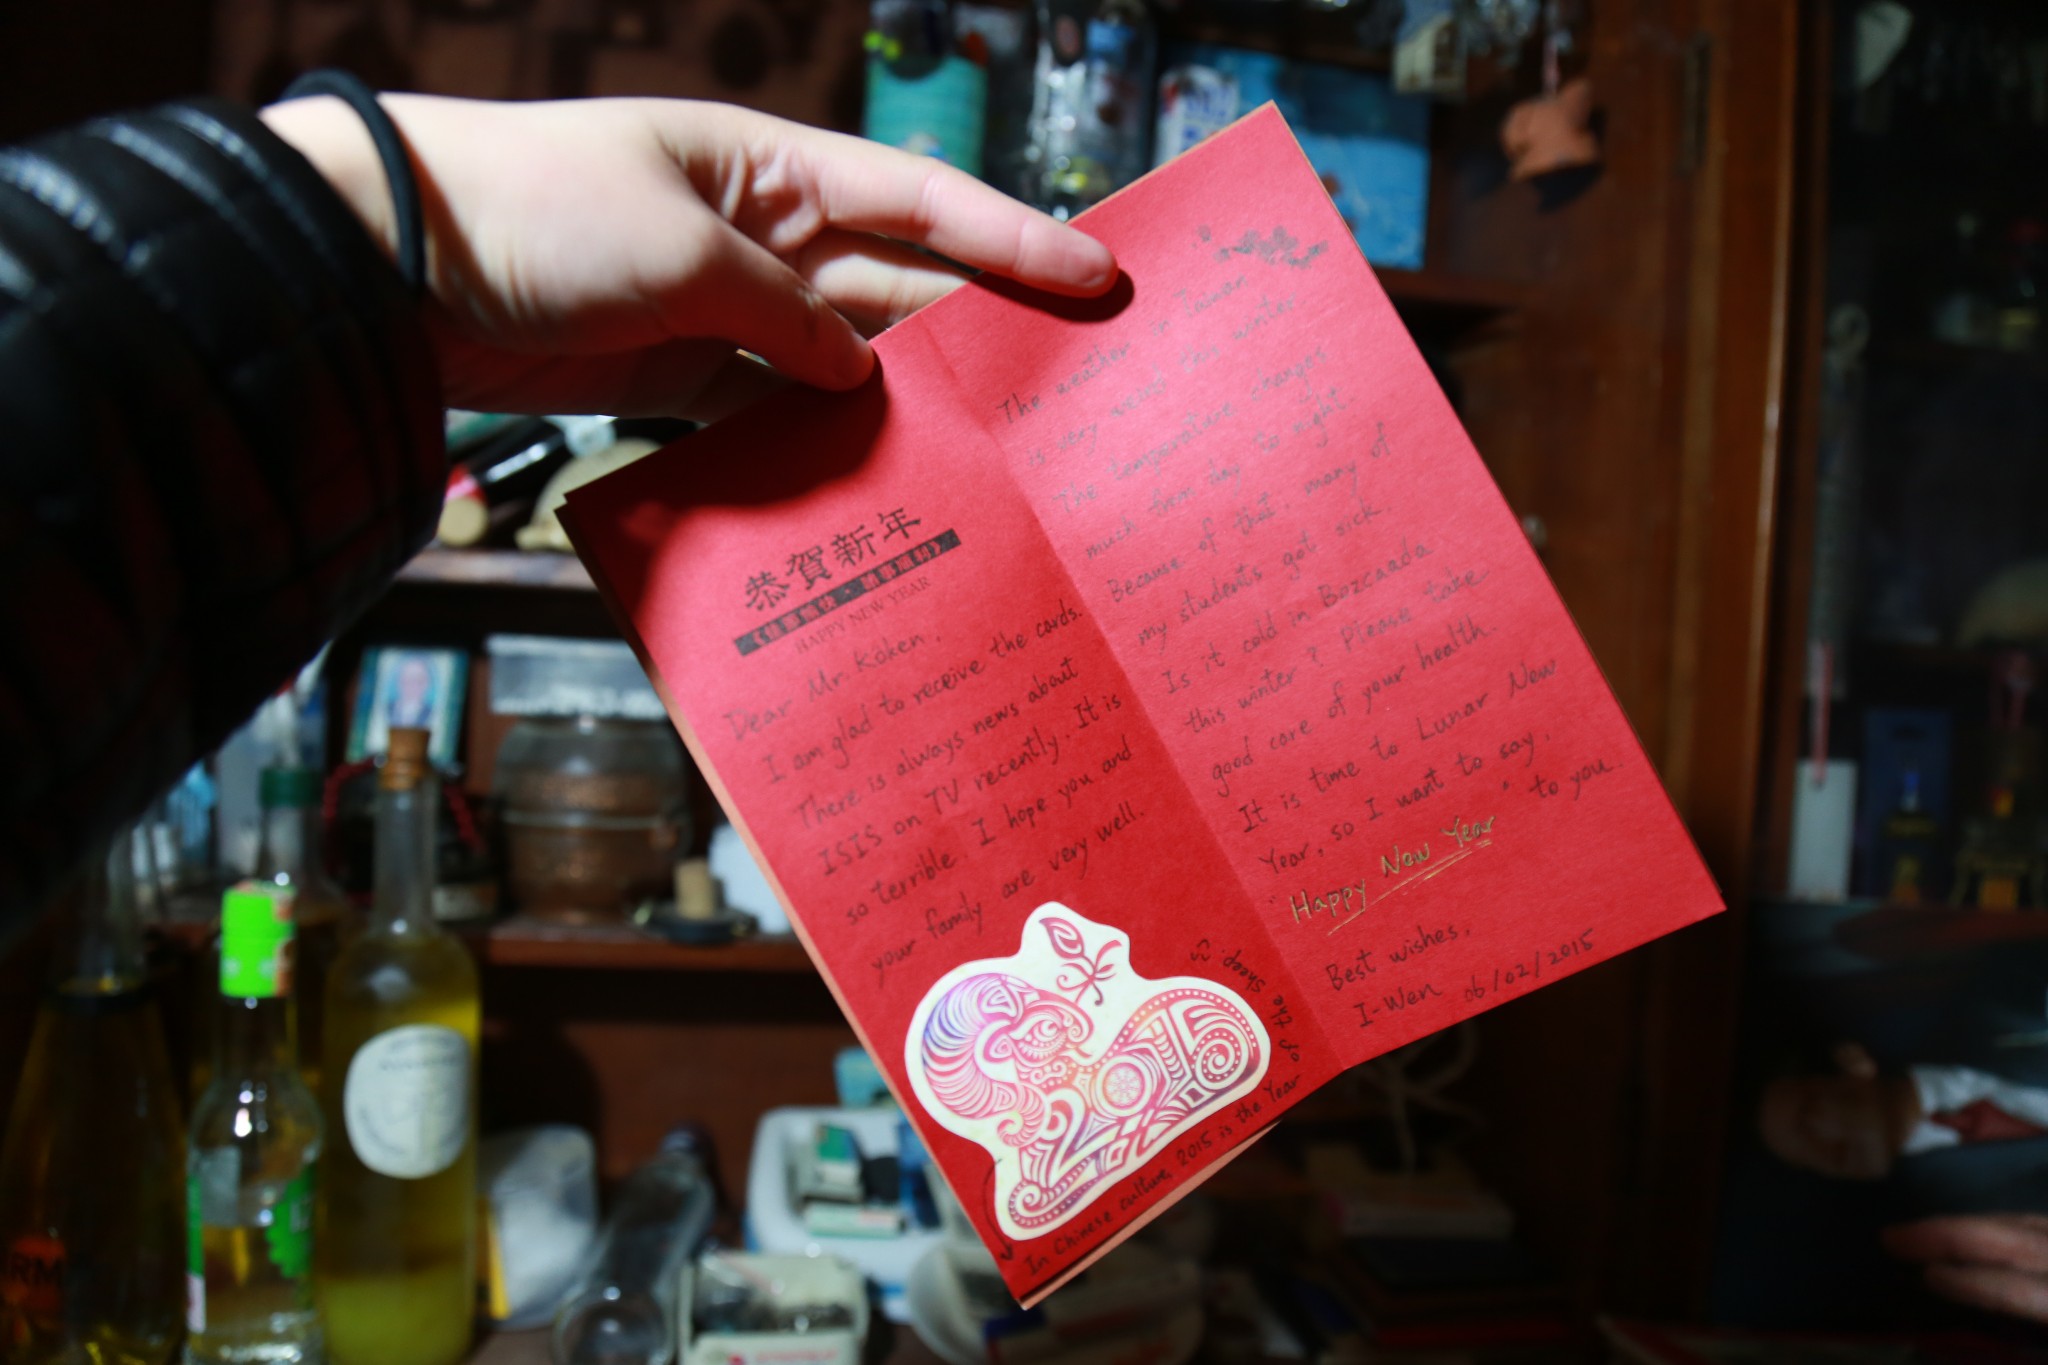 恭賀新年
《佳節愉快・諸事順利》
HAPPY NEW YEAR
Dear Mr. Köken,
I am glad to receive the cards.
There is always news about
ISIS on TV recently. It is
so terrible. I hope you and
your family are very well.
In Chinese culture, 2015 is the Year of the sheep.
2015
The weather in Taiwan
is very weird this winter
The temperature changes
much from day to night.
Because of that, many of
my students got sick.
Is it cold in Bozcaada
this winter? Please take
good care of your health.
It is time to Lunar New
Year, so I want to say,
"Happy New Year" to you.
Best wishes,
I-Wen 06/02/2015